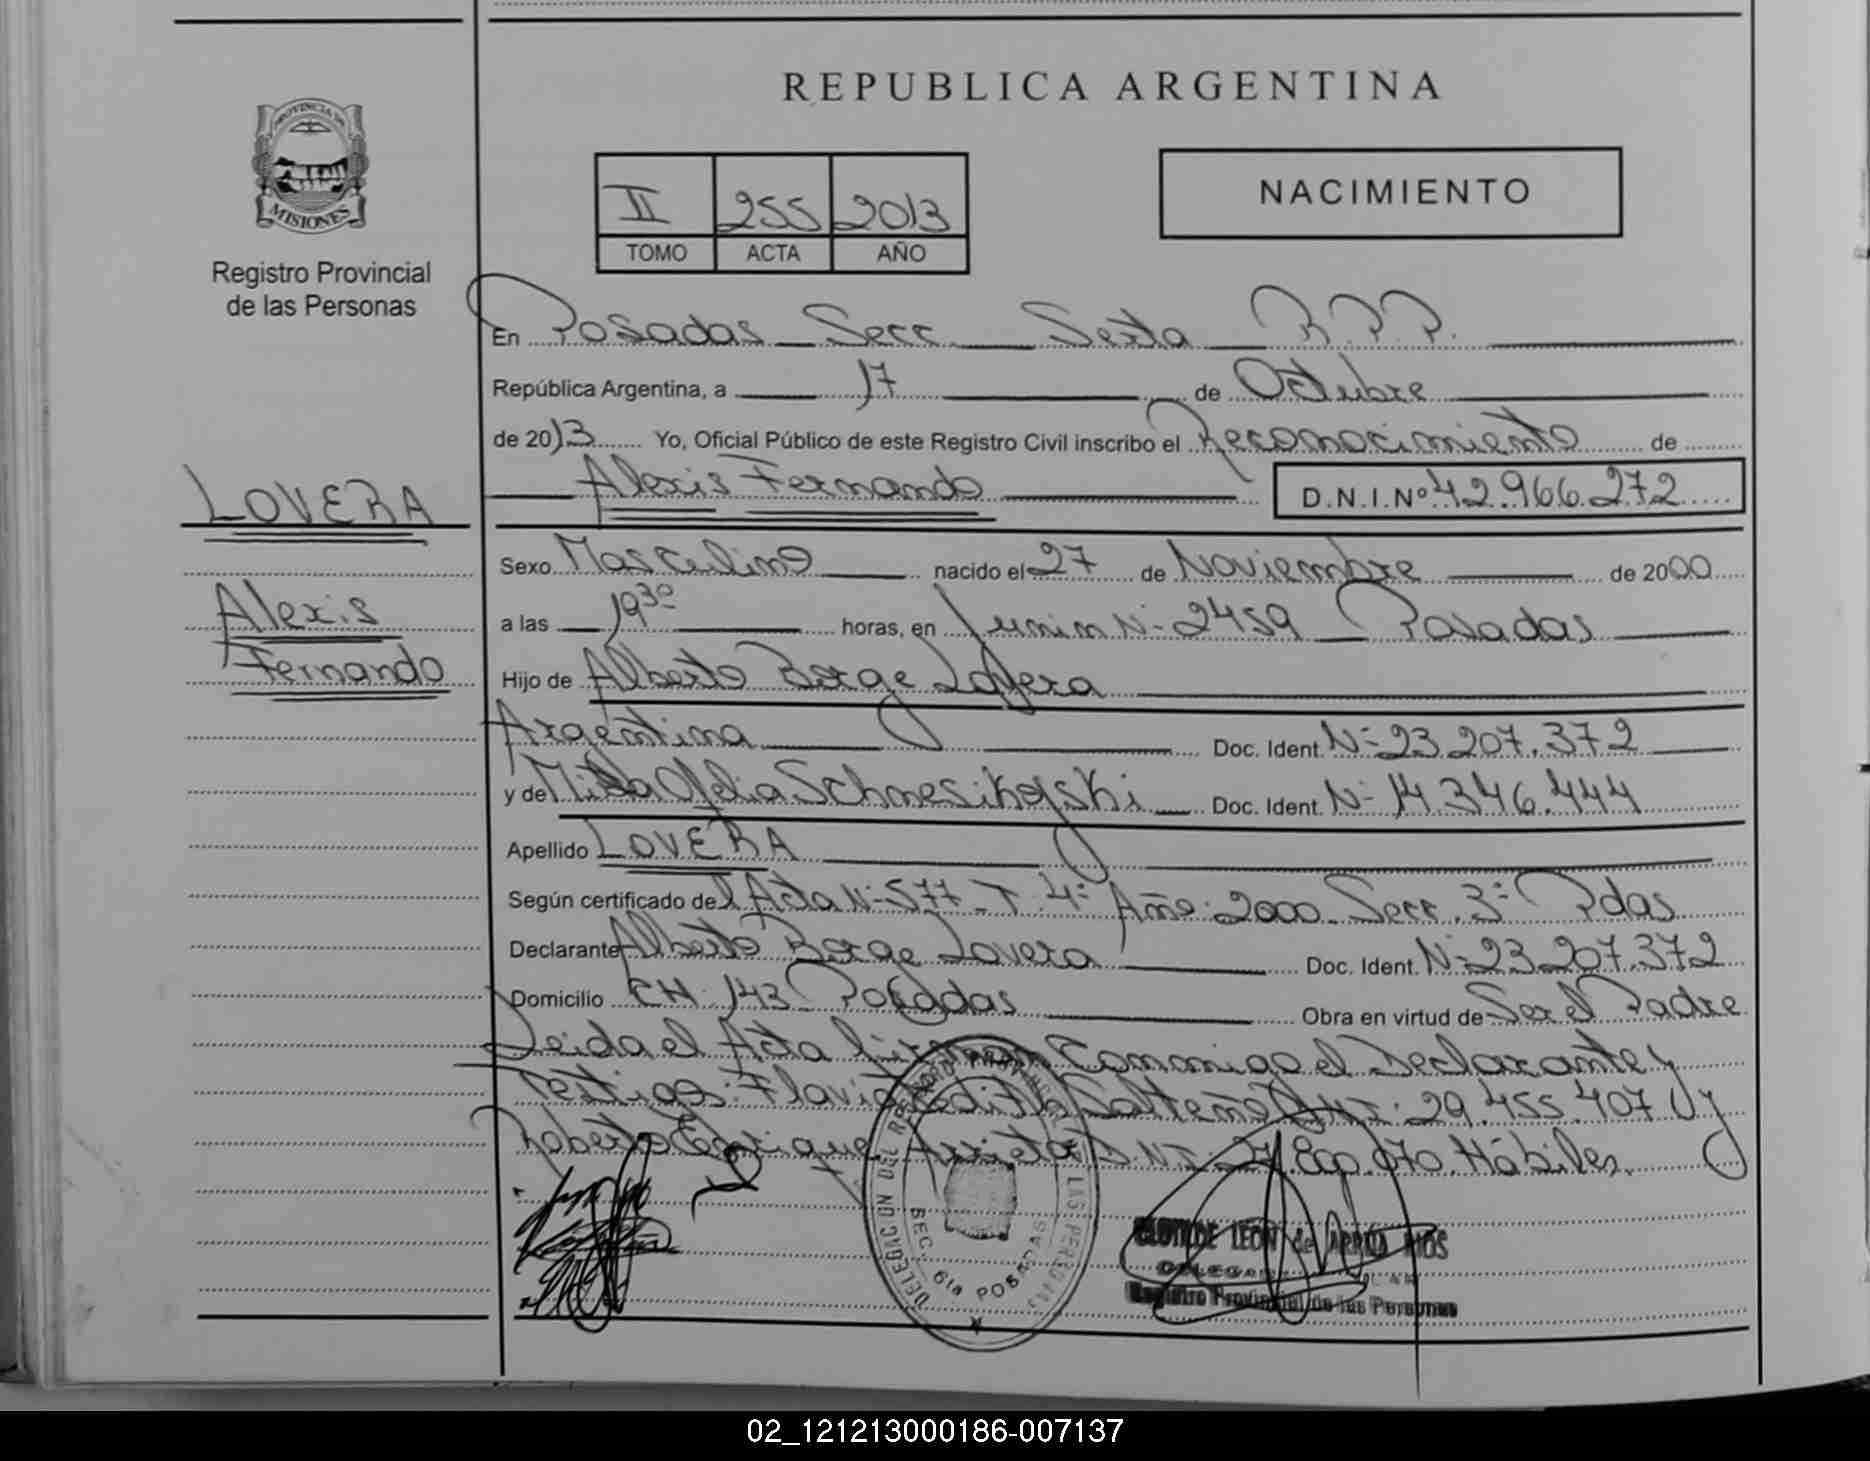 REPUBLICA ARGENTINA
PROVINCIA DE
MISIONES
Registro Provincial
de las Personas
II 255 2013
TOMO ACTA AÑO
NACIMIENTO
En Posadas Secc. Sexta R.P.P.
República Argentina, a 17 de Octubre
de 2013 Yo, Oficial Público de este Registro Civil inscribo el Reconocimiento de
Alexis Fernando D.N.I.Nº 42.966.272
LOVERA
Alexis
Fernando
Sexo Masculino nacido el 27 de Noviembre de 2000
a las 19 30 horas, en Junin Nº 2459 Posadas
Hijo de Alberto Jorge Lovera
Argentina Doc. Ident. Nº 23.207.372
y de Ofelia Doc. Ident. Nº 14.346.444
Apellido LOVERA
Según certificado del Acta Nº 577 T. 4º Año: 2000. Secc. 3º Pdas
Declarante Alberto Jorge Lovera Doc. Ident. Nº 23.207.372
Domicilio CH. 143 Posadas Obra en virtud de Ser el Padre
Leida el Acta firman Conmigo el Declarante y
Testigos: Flavia Salteño D.N.I: 29.455.407 y
Roberto Enrique Arrieta D.N.I: Hábiles.
DELEGACION DEL REGISTRO PROVINCIAL DE LAS PERSONAS
SEC. 6ta POSADAS
CLOTILDE LEON de ARRUA RIOS
Registro Provincial de las Personas
02_121213000186-007137